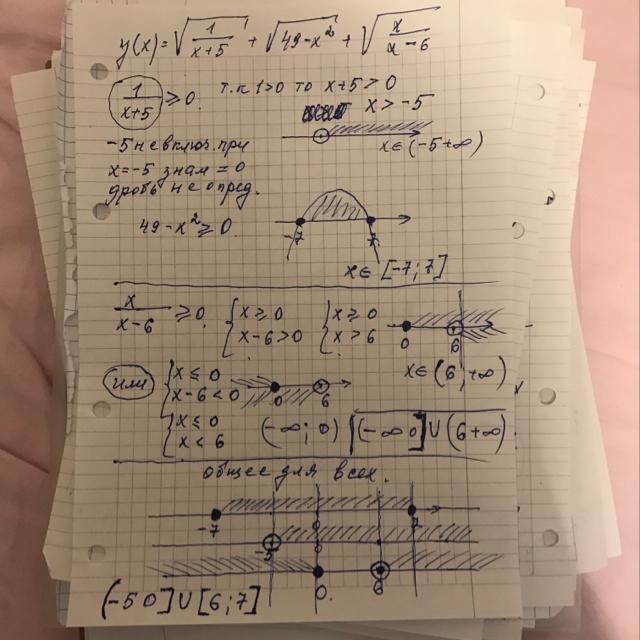 y(x)=√(1/(x+5)) + √(49-x²) + √(x/(x-6))
1/(x+5) ≥0. т.к 1>0 то x+5>0
x>-5
x∈(-5+∞)
-5 не включ. при
x=-5 знам =0
дробь не опред.
49-x²≥0.
-7 7
x∈[-7;7]
x/(x-6) ≥0. { x≥0 { x≥0
x-6>0 x>6
0 6
x∈(6;+∞)
или { x≤0
x-6<0
0 6
{ x≤0
x<6
(-∞;0) (-∞ 0]∪(6+∞)
общее для всех.
-7 7
-5
0. 6
(-5 0]∪[6;7]